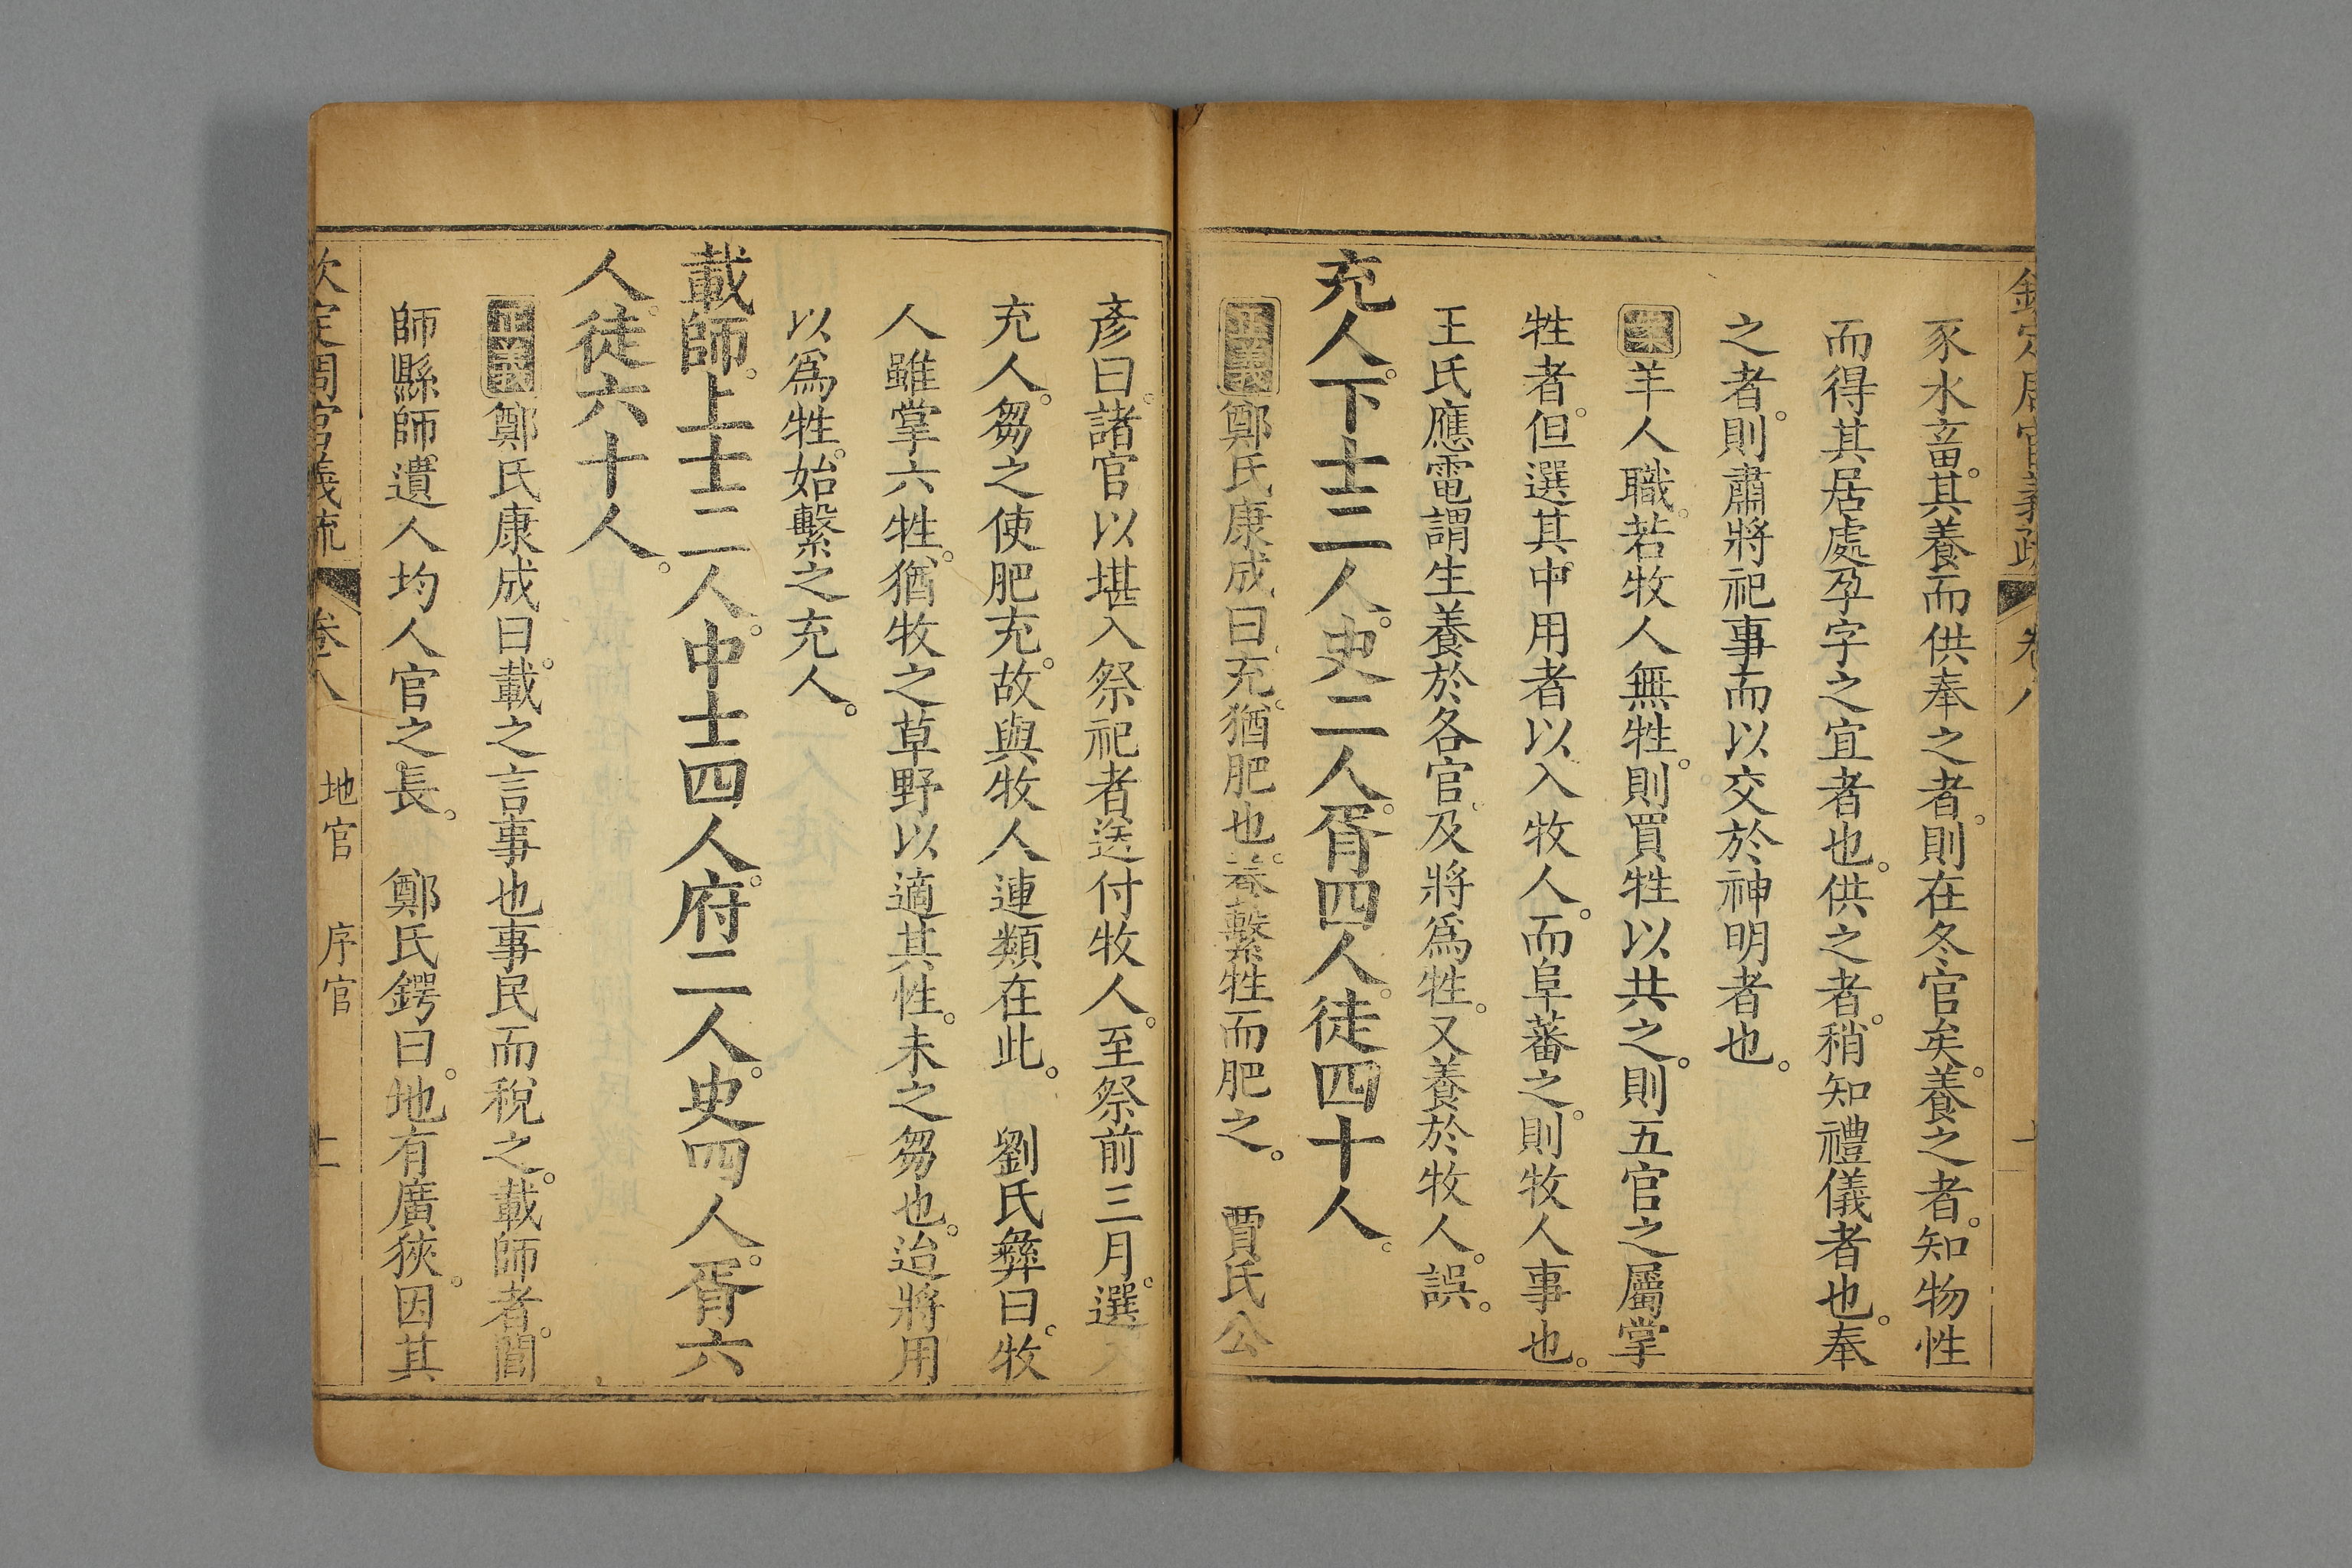 豕水畜。其養而供奉之者。則在冬官矣。養之者。知物性
而得其居處孕字之宜者也。供之者。稍知禮儀者也。奉
之者。則肅將祀事而以交於神明者也。
案羊人職。若牧人無牲。則買牲以共之。則五官之屬掌
牲者。但選其中用者以入牧人。而阜蕃之。則牧人事也。
王氏應電謂生養於各官。及將爲牲。又養於牧人。誤。
充人。下士二人。史二人。胥四人。徒四十人。
正義鄭氏康成曰。充。猶肥也。養繫牲而肥之。 賈氏公
彥曰。諸官以堪入祭祀者送付牧人。至祭前三月。選入
充人。芻之使肥充。故與牧人連類在此。 劉氏彝曰。牧
人雖掌六牲。猶牧之草野以適其性。未之芻也。迨將用
以爲牲。始繫之充人。
載師。上士二人。中士四人。府二人。史四人。胥六
人。徒六十人。
正義鄭氏康成曰。載之言事也事民而稅之。載師者。閭
師縣師遺人均人官之長。 鄭氏鍔曰。地有廣狹。因其
欽定周官義疏 卷八 地官 序官